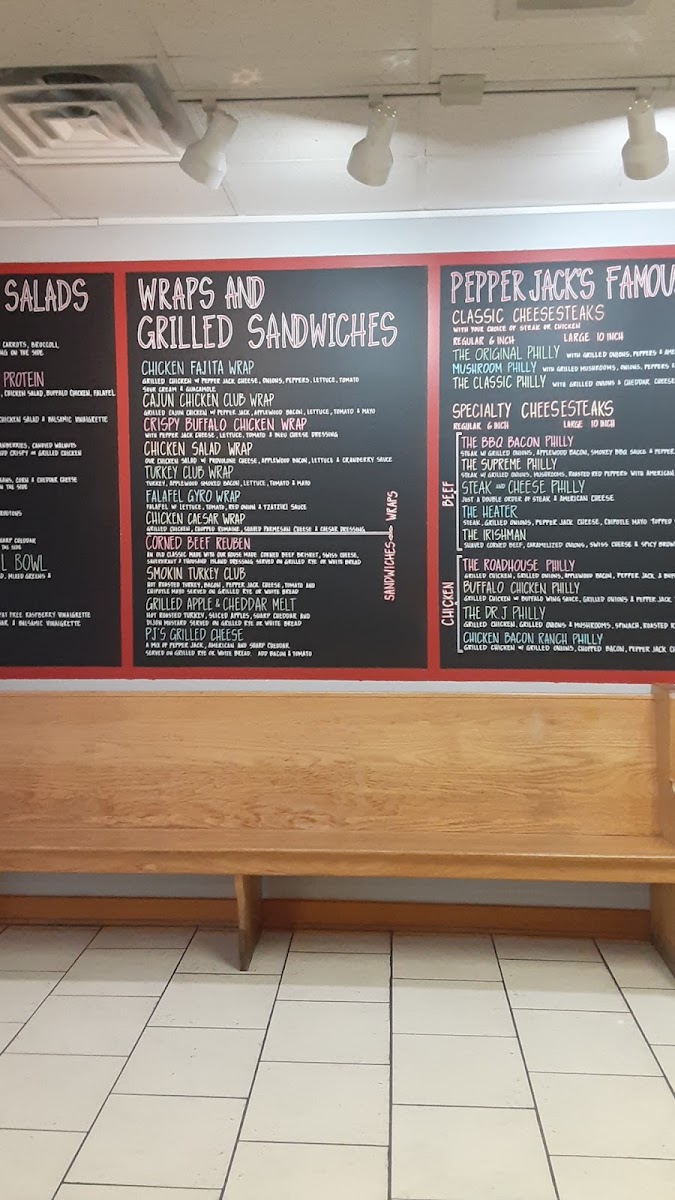 SALADS
CARROTS, BROCCOLI,
NG ON THE SIDE
PROTEIN
, CHICKEN SALAD, BUFFALO CHICKEN, FALAFEL
CHICKEN SALAD & BALSAMIC VINAIGRETTE
ANBERRIES, CANDIED WALNUTS
CRISPY OR GRILLED CHICKEN
CORN & CHEDDAR CHEESE
THE SIDE
SHARP CHEDDAR
THE SIDE
L BOWL
, MIXED GREENS &
FAT FREE RASPBERRY VINAIGRETTE
& BALSAMIC VINAIGRETTE
WRAPS AND
GRILLED SANDWICHES
CHICKEN FAJITA WRAP
GRILLED CHICKEN W/ PEPPER JACK CHEESE, ONIONS, PEPPERS, LETTUCE, TOMATO
SOUR CREAM & GUACAMOLE
CAJUN CHICKEN CLUB WRAP
GRILLED CAJUN CHICKEN W/ PEPPER JACK, APPLEWOOD BACON, LETTUCE, TOMATO & MAYO
CRISPY BUFFALO CHICKEN WRAP
WITH PEPPER JACK CHEESE, LETTUCE, TOMATO & BLEU CHEESE DRESSING
CHICKEN SALAD WRAP
OUR CHICKEN SALAD W/ PROVOLONE CHEESE, APPLEWOOD BACON, LETTUCE & CRANBERRY SAUCE
TURKEY CLUB WRAP
TURKEY, APPLEWOOD SMOKED BACON, LETTUCE, TOMATO & MAYO
FALAFEL GYRO WRAP
FALAFEL W/ LETTUCE, TOMATO, RED ONION & TZATZIKI SAUCE
CHICKEN CAESAR WRAP
GRILLED CHICKEN, CHOPPED ROMAINE, SHAVED PARMESAN CHEESE & CAESAR DRESSING
WRAPS
SANDWICHES
CORNED BEEF REUBEN
AN OLD CLASSIC MADE WITH OUR HOUSE MADE CORNED BEEF BRISKET, SWISS CHEESE,
SAUERKRAUT & THOUSAND ISLAND DRESSING SERVED ON GRILLED RYE OR WHITE BREAD
SMOKIN TURKEY CLUB
HOT ROASTED TURKEY, BACON, PEPPER JACK CHEESE, TOMATO AND
CHIPOTLE MAYO SERVED ON GRILLED RYE OR WHITE BREAD
GRILLED APPLE & CHEDDAR MELT
HOT ROASTED TURKEY, SLICED APPLES, SHARP CHEDDAR AND
DIJON MUSTARD SERVED ON GRILLED RYE OR WHITE BREAD
PJ'S GRILLED CHEESE
A MIX OF PEPPER JACK, AMERICAN AND SHARP CHEDDAR
SERVED ON GRILLED RYE OR WHITE BREAD. ADD BACON & TOMATO
PEPPER JACK'S FAMOU
CLASSIC CHEESESTEAKS
WITH YOUR CHOICE OF STEAK OR CHICKEN
REGULAR 6 INCH LARGE 10 INCH
THE ORIGINAL PHILLY WITH GRILLED ONIONS, PEPPERS & AME
MUSHROOM PHILLY WITH GRILLED MUSHROOMS, ONIONS, PEPPERS &
THE CLASSIC PHILLY WITH GRILLED ONIONS & CHEDDAR CHEESE
SPECIALTY CHEESESTEAKS
REGULAR 6 INCH LARGE 10 INCH
BEEF
THE BBQ BACON PHILLY
STEAK W/ GRILLED ONIONS, APPLEWOOD BACON, SMOKEY BBQ SAUCE & PEPPER
THE SUPREME PHILLY
STEAK W/ GRILLED ONIONS, MUSHROOMS, ROASTED RED PEPPERS WITH AMERICAN
STEAK AND CHEESE PHILLY
JUST A DOUBLE ORDER OF STEAK & AMERICAN CHEESE
THE HEATER
STEAK, GRILLED ONIONS, PEPPER JACK CHEESE, CHIPOTLE MAYO TOPPED
THE IRISHMAN
SHAVED CORNED BEEF, CARAMELIZED ONIONS, SWISS CHEESE & SPICY BROWN
CHICKEN
THE ROADHOUSE PHILLY
GRILLED CHICKEN, GRILLED ONIONS, APPLEWOOD BACON, PEPPER JACK &
BUFFALO CHICKEN PHILLY
GRILLED CHICKEN W/ BUFFALO WING SAUCE, GRILLED ONIONS & PEPPER JACK
THE DR.J PHILLY
GRILLED CHICKEN, GRILLED ONIONS & MUSHROOMS, SPINACH, ROASTED R
CHICKEN BACON RANCH PHILLY
GRILLED CHICKEN W/ GRILLED ONIONS, CHOPPED BACON, PEPPER JACK C